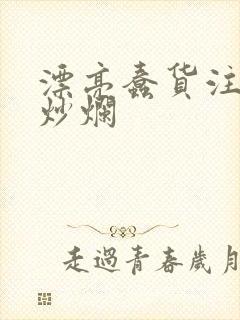 漂亮蠢货注
炒爛
走過青春歲月